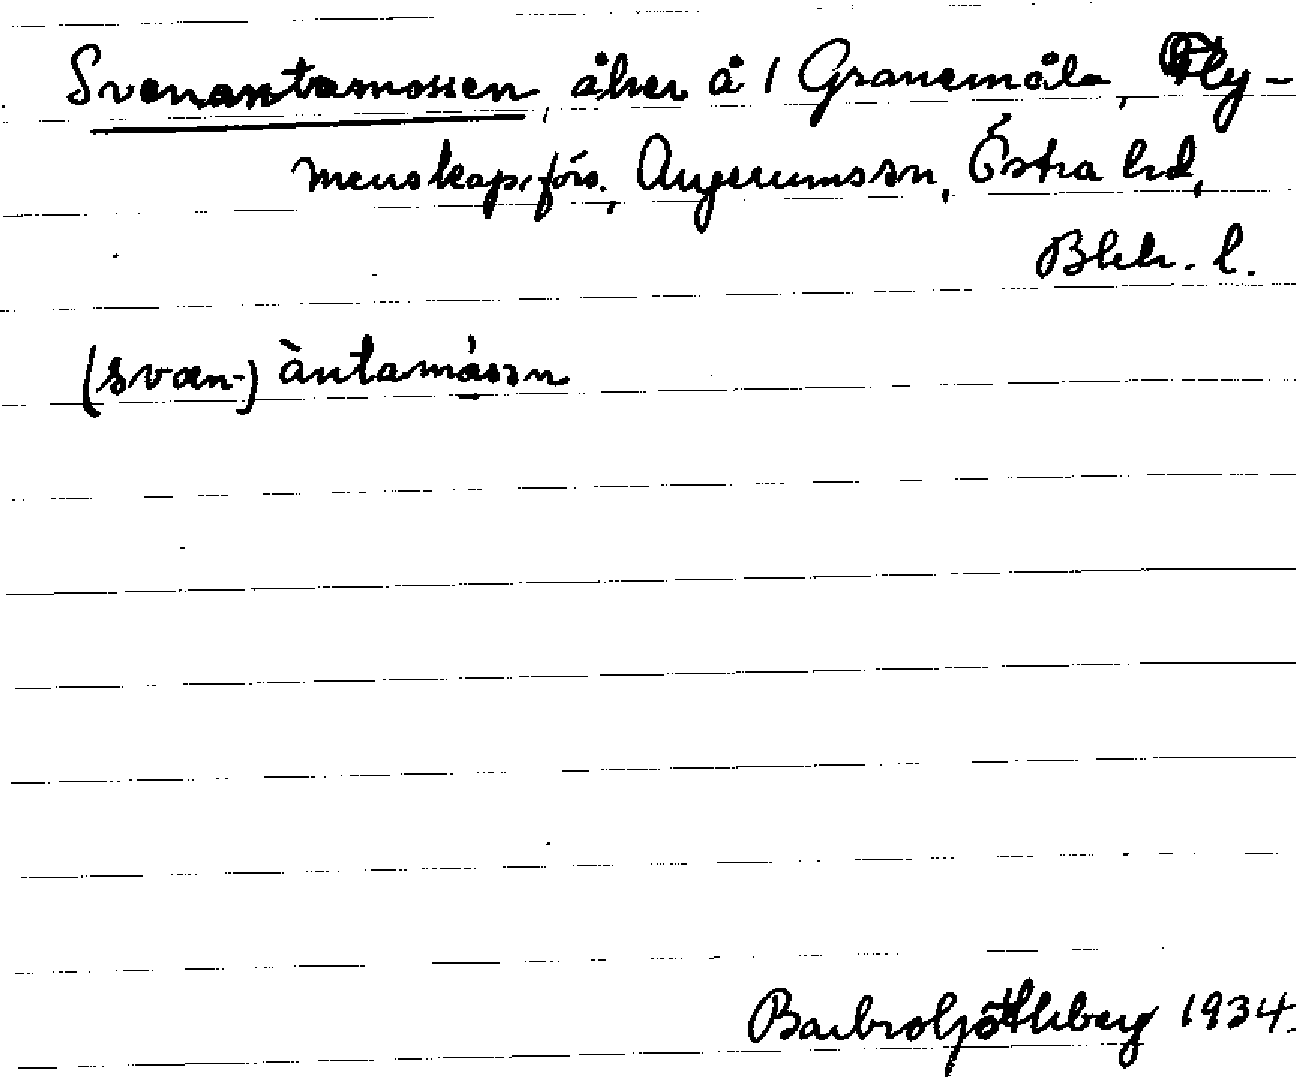 Svenantamossen, åker å 1 Granemåla, Fly-
menskap. förs., Augerumssn, Östra hd,
Blek. l.
(svæn-) àntamåsən
Barbro Götherberg 1934.